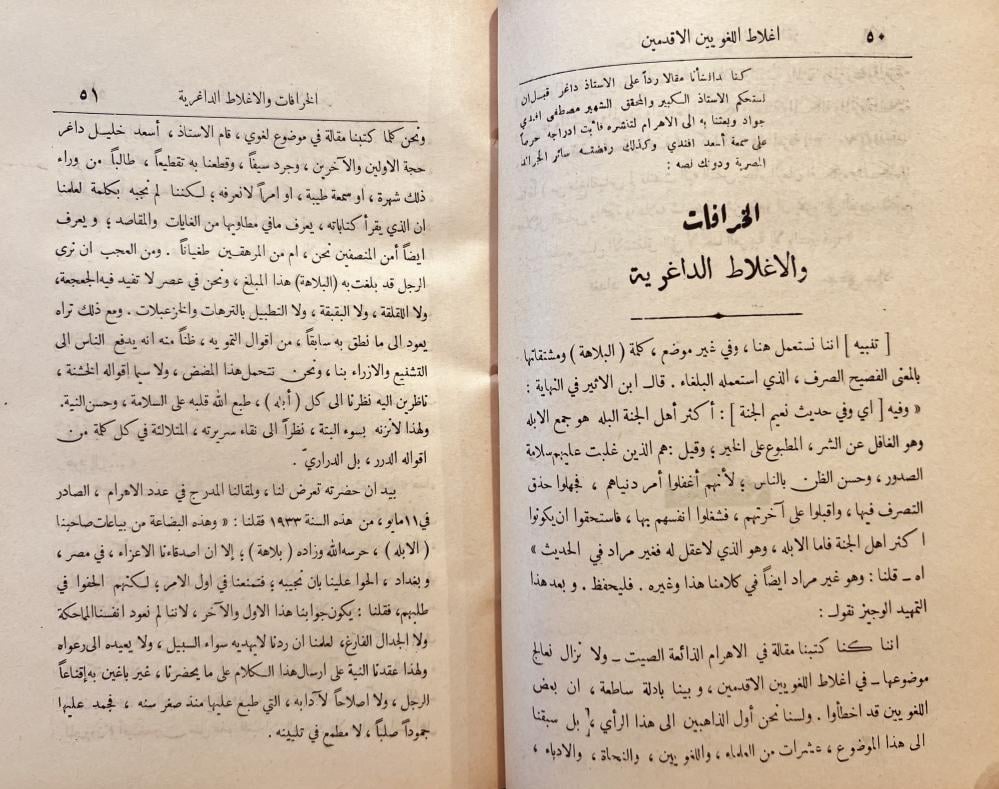 ٥٠
اغلاط اللغويين الاقدمين
كنا قد انشأنا مقالا رداً على الاستاذ داغر قبل ان
نستحكم الاستاذ الكبير والمحقق الشهير مصطفى افندي
جواد وبعثنا به الى الاهرام لتنشره فأبت ادراجه حرصاً
على سمعة أسعد افندي وكذلك رفضته سائر الجرائد
المصرية ودونك نصه :
الخرافات
والاغلاط الداغرية
[ تنبيه ] اننا نستعمل هنا ، وفي غير موضع ، كلمة ( البلاهة ) ومشتقاتها
بالمعنى الفصيح الصرف ، الذي استعمله البلغاء . قال ابن الاثير في النهاية :
« وفيه [ اي وفي حديث نعيم الجنة ] : أكثر أهل الجنة البله هو جمع الابله
وهو الغافل عن الشر ، المطبوع على الخير ؛ وقيل : هم الذين غلبت عليهم سلامة
الصدور ، وحسن الظن بالناس ؛ لأنهم أغفلوا أمر دنياهم ، فجهلوا حذق
التصرف فيها ، واقبلوا على آخرتهم ، فشغلوا انفسهم بها ، فاستحقوا ان يكونوا
اكثر اهل الجنة فاما الابله ، وهو الذي لا عقل له فغير مراد في الحديث »
اه ــ قلنا : وهو غير مراد ايضاً في كلامنا هذا وغيره . فليحفظ . وبعد هذا
التمهيد الوجيز نقول :
اننا كنا كتبنا مقالة في الاهرام الذائعة الصيت ــ ولا نزال نعالج
موضوعها ــ في اغلاط اللغويين الاقدمين ، وبينا بادلة ساطعة ، ان بعض
اللغويين قد اخطأوا . ولسنا نحن أول الذاهبين الى هذا الرأي ، بل سبقنا
الى هذا الموضوع ، عشرات من العلماء ، واللغويين ، والنحاة ، والادباء ،
الخرافات والاغلاط الداغرية
٥١
ونحن كلما كتبنا مقالة في موضوع لغوي ، قام الاستاذ ، أسعد خليل داغر
حجة الاولين والآخرين ، وجرد سيفاً ، وقطعنا به تقطيعاً ، طالباً من وراء
ذلك شهرة ، او سمعة طيبة ، او امراً لا نعرفه ؛ لكننا لم نجبه بكلمة لعلمنا
ان الذي يقرأ كتاباته ، يعرف ما في مطاويها من الغايات والمقاصد ؛ ويعرف
ايضاً أمن المنصفين نحن ، ام من المرهقين طغياناً . ومن العجب ان نرى
الرجل قد بلغت به ( البلاهة ) هذا المبلغ ، ونحن في عصر لا تفيد فيه الجعجعة ،
ولا اللقلقة ، ولا البقبقة ، ولا التطبيل بالترهات والخزعبلات . ومع ذلك تراه
يعود الى ما نطق به سابقاً ، من اقوال التمويه ، ظناً منه انه يدفع الناس الى
التشنيع والازراء بنا ، ونحن نتحمل هذا المضض ، ولا سيما اقواله الخشنة ،
ناظرين اليه نظرنا الى كل ( أبله ) ، طبع الله قلبه على السلامة ، وحسن النية .
ولهذا لا نزنه بسوء البتة ، نظراً الى نقاء سريرته ، المتلالئة في كل كلمة من
اقواله الدرر ، بل الدراريّ .
بيد ان حضرته تعرض لنا ، ولمقالنا المدرج في عدد الاهرام ، الصادر
في ١١ مايو ، من هذه السنة ١٩٣٣ فقلنا : « وهذه البضاعة من بياعات صاحبنا
( الابله ) ، حرسه الله وزاده ( بلاهة ) ؛ إلا ان اصدقاءنا الاعزاء ، في مصر ،
وبغداد ، الحوا علينا بان نجيبه ؛ فتمنعنا في اول الامر ؛ لكنهم الحفوا في
طلبهم ، فقلنا : يكون جوابنا هذا الاول والآخر ، لاننا لم نعود انفسنا الماحكة
ولا الجدال الفارغ ، لعلمنا ان ردنا لا يهديه سواء السبيل ، ولا يعيده الى رعواه
ولهذا عقدنا النية على ارسال هذا الكلام على ما يحضرنا ، غير باغين به إقناعاً
الرجل ، ولا اصلاحاً لآدابه ، التي طبع عليها منذ صغر سنه ، فجمد عليها
جموداً صلباً ، لا مطمع في تليينه .